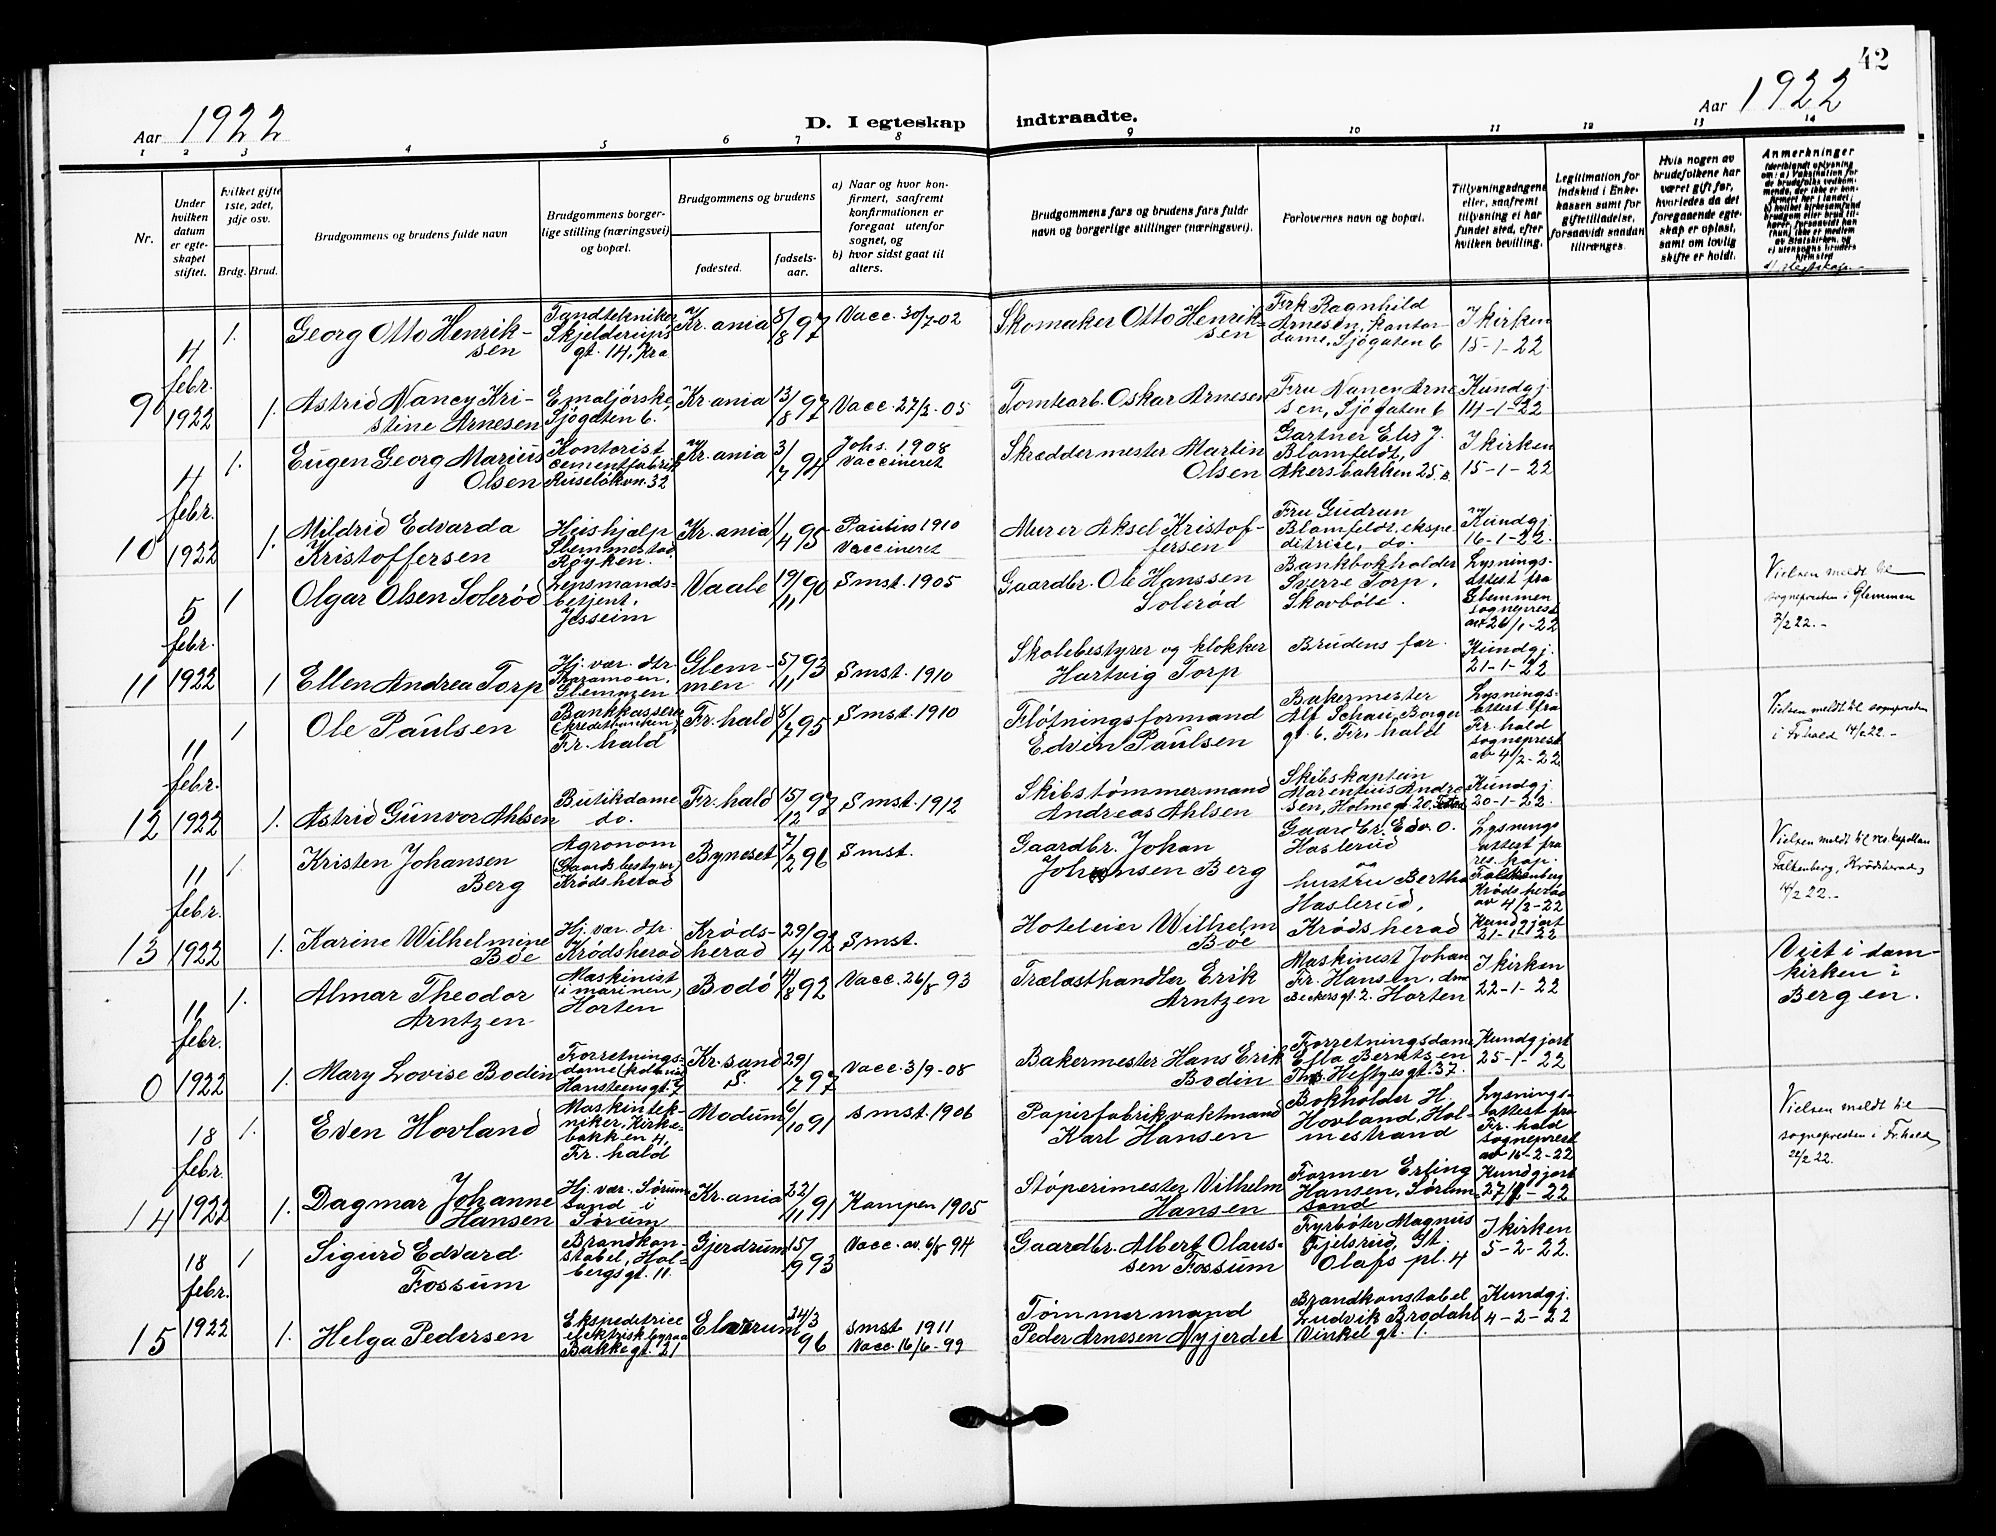 42
Aar 1922
D. I egteskap
indtraadte.
Aar 1922
1 2 3 4 5 6 7 8 9 10 11 12 13 14
Nr.
Under hvilken datum er egteskapet stiftet.
Hvilket gifte 1ste, 2det, 3dje osv.
Brdg. Brud.
Brudgommens og brudens fulde navn
Brudgommens borgerlige stilling (næringsvei) og bopæl.
Brudgommens og brudens
fødested.
fødselsaar.
a) Naar og hvor konfirmert, saafremt konfirmationen er foregaat utenfor sognet, og
b) hvor sidst gaat til alters.
Brudgommens fars og brudens fars fulde navn og borgerlige stillinger (næringsvei).
Forlovernes navn og bopæl.
Tillysningsdagene eller, saafremt tillysning ei har fundet sted, efter hvilken bevilling.
Legitimation for indskud i Enkekassen samt for giftetilladelse, forsaavidt saadan tiltrænges.
Hvis nogen av brudefolkene har været gift før, hvorledes da det foregaaende egteskap er opløst, samt om lovlig skifte er holdt.
Anmerkninger
9 4 febr. 1922
1. Georg Otto Henriksen
Tandtekniker Skjelderups gt. 14, Kra
Kr.ania 8/8 97
Vacc. 30/7-02
Skomaker Otto Henriksen
Frk Ragnhild Arnesen, kontordame, Sjøgaten 6
I kirken 15-1-22
1. Astrid Nancy Kristine Arnesen
Emaljørske, Sjøgaten 6.
Kr.ania 13/8 97
Vacc. 27/2-05
Tomtearb. Oskar Arnesen
Fru Nancy Arnesen, Sjøgaten 6
Kundgj. 14-1-22
10 4 febr. 1922
1. Eugen Georg Marius Olsen
Kontorist cementfabrik Ruseløkvn. 32
Kr.ania 3/7 94
Johs. 1908 Vaccineret
Skreddermester Martin Olsen
Gartner Elis J. Blomfeldt, Akersbakken 25.
I kirken 15-1-22
1. Mildrid Edvarda Kristoffersen
Hushjælp Slemmestad Røyken.
Kr.ania 11/4 95
Paulus 1910 Vaccineret
Murer Aksel Kristoffersen
Fru Gudrun Blomfeldt, ekspeditrice, do.
Kundgj. 16-1-22.
11 5 febr. 1922
1 Olgar Olsen Solerød
Lensmandsbetjent, Jesseim
Vaale 19/11 90
Smst. 1905
Gaardbr. Ole Hanssen Solerød
Bankbokholder Sverre Torp, Skovbøle.
Lysningsattest fra Glemmen sogneprest av 26/1-22
Vielsen meldt til sognepresten i Glemmen 7/2 22.-
1 Ellen Andrea Torp
Hj. vær. dtr. Karamoen, Glemmen
Glemmen 5/11 93
Smst. 1910
Skolebestyrer og klokker Hartvig Torp
Brudens far.
Kundgj. 21-1-22
12 11 febr. 1922
1 Ole Paulsen
Bankkasserer (kreditbanken) Fr.hald
Fr.hald 8/7 95
Smst. 1910
Fløtningsformand Edvin Paulsen
Bakermester Alf Schau, Borgergt. 6, Fr.hald
Lysningsattest fra Fr.hald sogneprest av 4/2-22
Vielsen meldt til sognepresten i Fr.hald 14/2 22.-
1. Astrid Gunvor Ahlsen
Butikdame do.
Fr.hald 15/12 97
Smst. 1912
Skibstømmermand Andreas Ahlsen
Skibskaptein Marentius Andresen, Holmegt 20,
Kundgj. 20-1-22.
13 11 febr. 1922
1. Kristen Johansen Berg
Agronom (Gaardsbestyrer) Krødsherad
Byneset 7/2 96
Smst.
Gaardbr. Johan Johansen Berg
Gaardbr. Edv. O. Haslerud og hustru Bertha Haslerud, Krødsherad
Lysningsattest fra res. kap. Falkenberg Krødsherad av 4/2-22
Vielsen meldt til res.kapellan Falkenberg, Krødsherad, 14/2 22.-
1. Karine Wilhelmine Bøe
Hj. vær. dtr. Krødsherad
Krødsherad 29/4 92
Smst.
Hoteleier Wilhelm Bøe
Kundgjort 21-1-22
0 11 febr. 1922
1. Almar Theodor Arntzen
Maskinist (i marinen) Horten
Bodø 4/8 92
Vacc. 26/8 93
Trælasthandler Erik Arntzen
Maskinist Johan Fr. Hansen, Beckersgt. 2. Horten
I kirken 22-1-22
Viet i domkirken i Bergen.
1. Mary Lovise Bodin
Forretningsdame Hansteensgt. 7
Kr.sand S. 29/7 97
Vacc. 3/9-08
Bakermester Hans Erik Bodin
Forretningsdame Ella Berntsen Ths. Heftyesgt. 37.
Kundgjort 25-1-22
14 18 febr. 1922
1. Even Hovland
Maskintekniker, Kirkebakken 4, Fr.hald
Modum 6/10 91
Smst. 1906
Papirfabrikvaktmand Karl Hansen
Bokholder H. Hovland, Holmestrand
Lysningsattest fra Fr.hald sogneprest av 16-2-22
Vielsen meldt til sognepresten i Fr.hald 22/2 22.
1. Dagmar Johanne Hansen
Hj. vær. Sørumsand i Sørum
Kr.ania 22/11 91
Kampen 1905
Støperimester Vilhelm Hansen
Former Erling Hansen, Sørumsand
Kundgjort 27/1-22
15 18 febr. 1922
1 Sigurd Edvard Fossum
Brandkonstabel, Holbergsgt. 11.
Gjerdrum 15/9 93
Vacc. av 6/8 94
Gaardbr. Albert Olaussen Fossum
Fyrbøter Magnus Fjelsrud, St. Olafs pl. 4
I kirken 5-2-22.
1. Helga Pedersen
Ekspeditrice elektriskbyraa Bakkegt. 21
Elverum 24/3 96
Smst 1911 Vacc. 16/6-99
Tømmermand Peder Arnesen Nyjerdet
Brandkonstabel Ludvik Brodahl Vinkelgt. 1.
Kundgj. 4-2-22